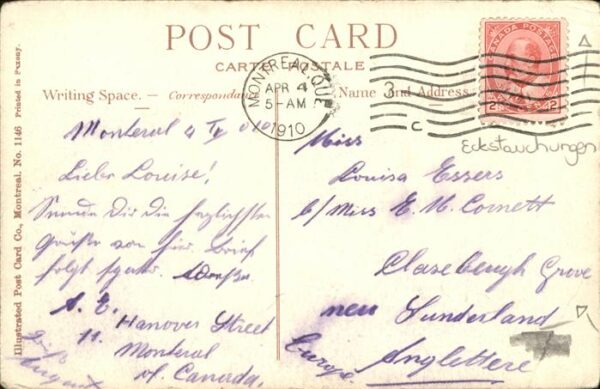 POST CARD
CARTE POSTALE
CANADA POSTAGE
2 2
MONTREAL, QUE.
APR 4
5-AM
1910
3
C
Writing Space. — Correspondance
Name and Address.
Eckstauchungen
Illustrated Post Card Co., Montreal. No. 1146 Printed in Saxony.
Montreal 4 IV 010
Liebe Louise!
Sende Dir die herzlichsten
Grüße von hier. Brief
folgt später. Adresse
A. E.
11. Hanover Street
Montreal
Canada.
Gruß
August
Miss
Louisa Essers
c/ Miss E. M. Cornett
Grove
near Sunderland
Angleterre
Europe